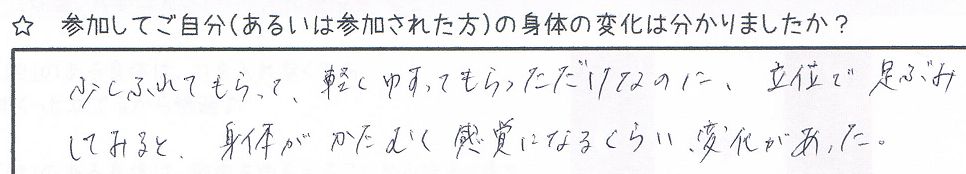 ☆ 参加してご自分(あるいは参加された方)の身体の変化は分かりましたか？
少しふれてもらって、軽くゆすってもらっただけなのに、立位で足ぶみ
してみると、身体がかたむく感覚になるくらい、変化があった。